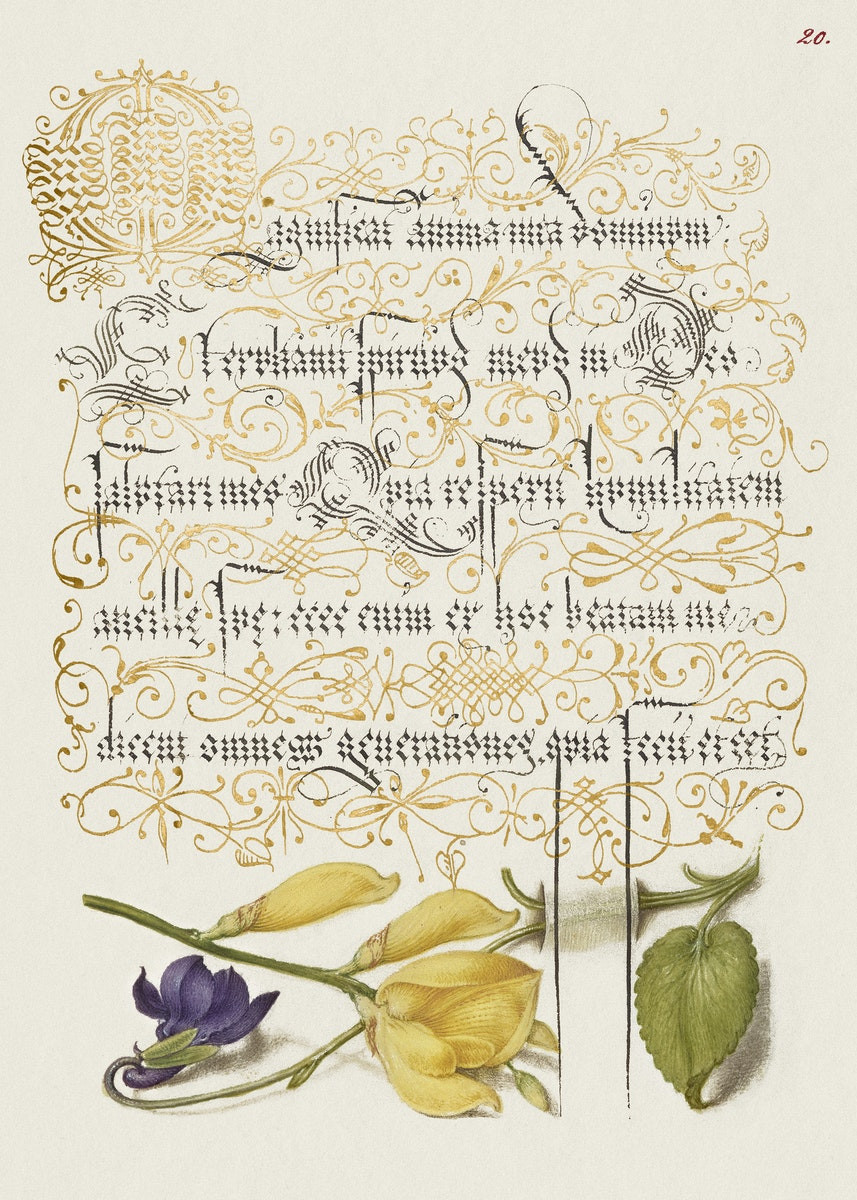 20.
Magnificat anima mea dominum:
Et exvltauit spiritvs mevs in Deo
salvtari meo Qvia respexit hvmilitatem
ancillę svę: ecce enim ex hoc beatam me
dicent omnes generationes, qvia fecit et cet: